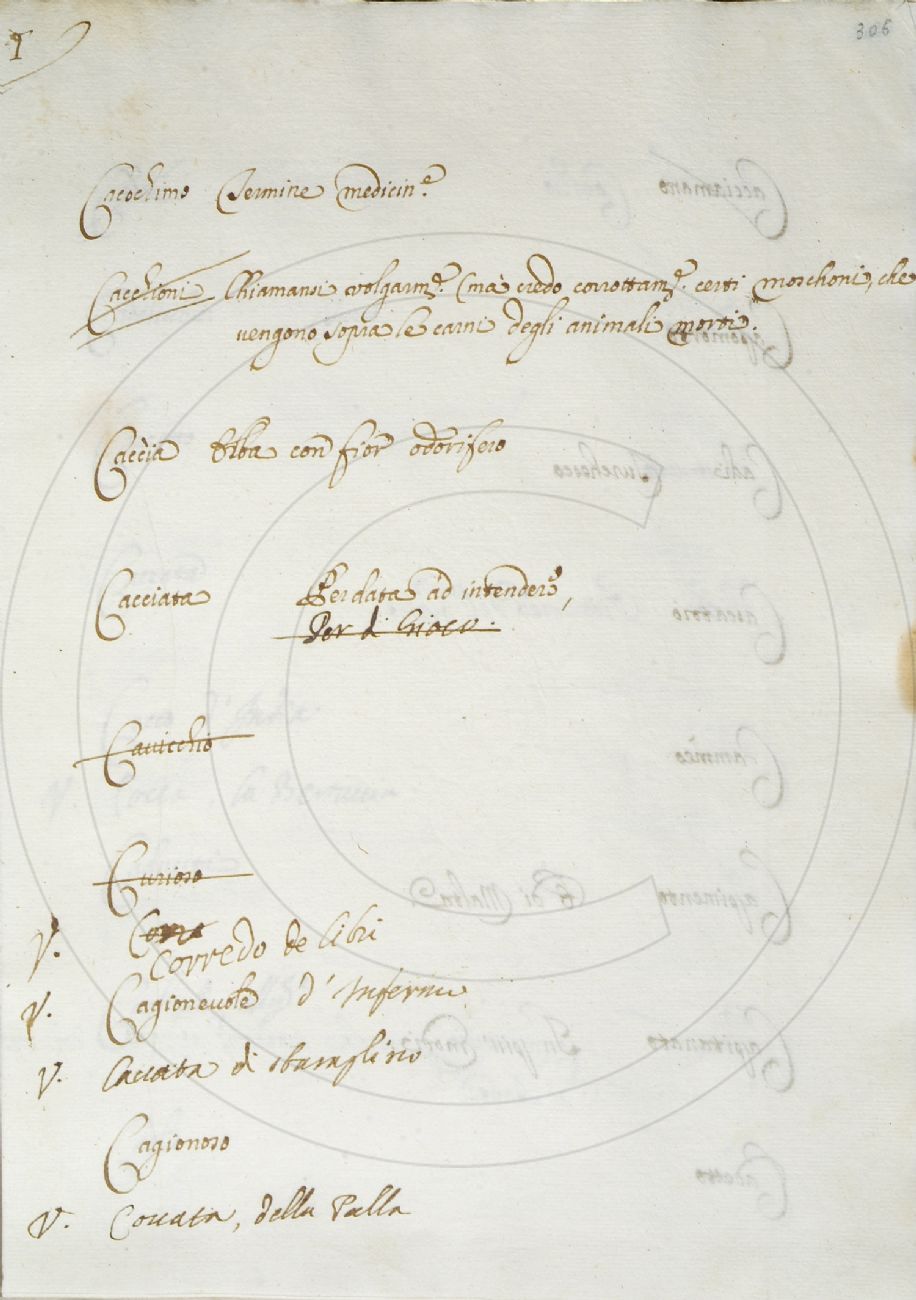 306
Cacochimo Termine medicin.e
Cacchioni Chiamansi volgarm.e (mà credo corrottam.e certi moschoni, che
vengono sopra le carni degli animali morti.
Caccia Erba con fior odorifero
Cacciata Per data ad intendere,
Per di Gioco.
Cavicchio
Curioso
V. Corredo de libri
V. Cagionevole d'
V. Cacciata di
Cagionoso
V. della Palla